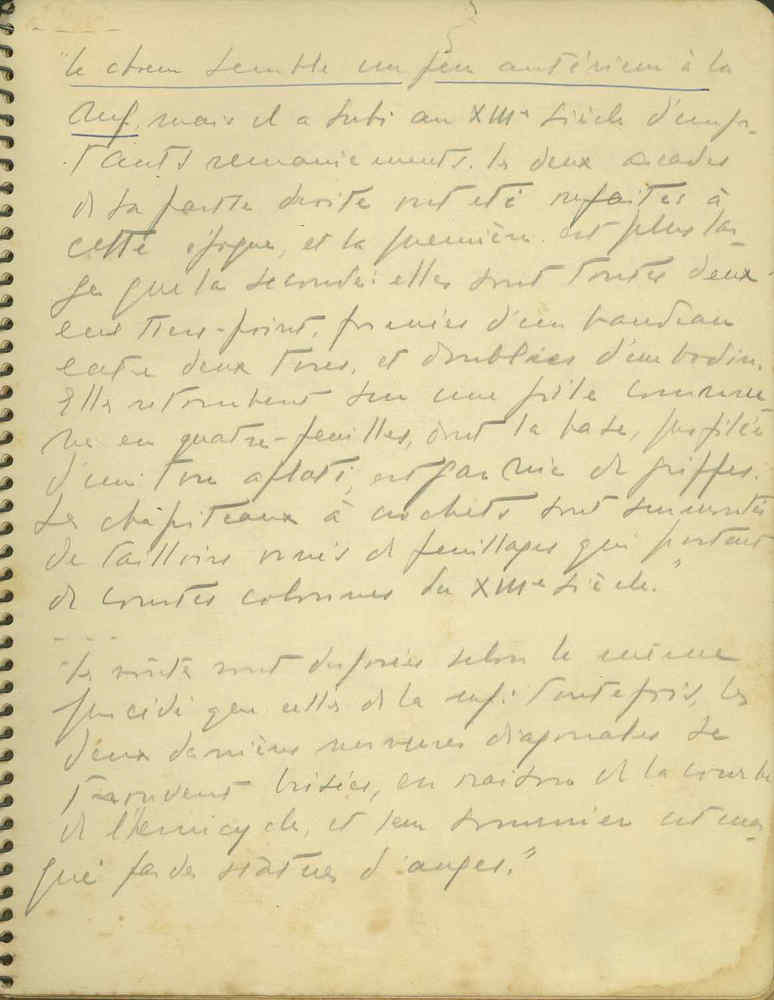 - - - - -
"le chœur semble un peu antérieur à la
nef, mais il a subi au XIIIe siècle d'impor-
tants remaniements. les deux arcades
de sa partie droite ont été refaites à
cette époque, et la première est plus lar-
ge que la seconde: elles sont toutes deux
en tiers-point, formées d'un bandeau
entre deux tores, et doublées d'un bodin.
Elles retombent sur une pile commu-
ne en quatre-feuilles, dont la base, profilée
d'un tore aplati, est garnie de griffes.
Les chapiteaux à crochets sont surmontés
de tailloirs ornés de feuillages qui portent
de courtes colonnes du XIIIe siècle."
- - - -
"Les voûtes sont disposées selon le même
procédé que celles de la nef: toutefois, les
deux dernières nervures diagonales se
trouvent brisées, en raison de la courbe
de l'hémicycle, et leur sommier est mar-
qué par des statues d'anges."